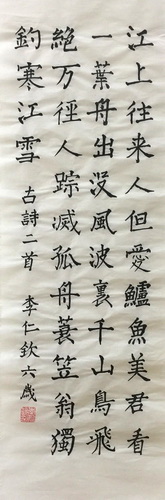 江上往来人但愛鱸魚美君看
一葉舟出没風波裏千山鳥飛
絶万徑人踪滅孤舟蓑笠翁獨
釣寒江雪 古詩二首 李仁欽六歲